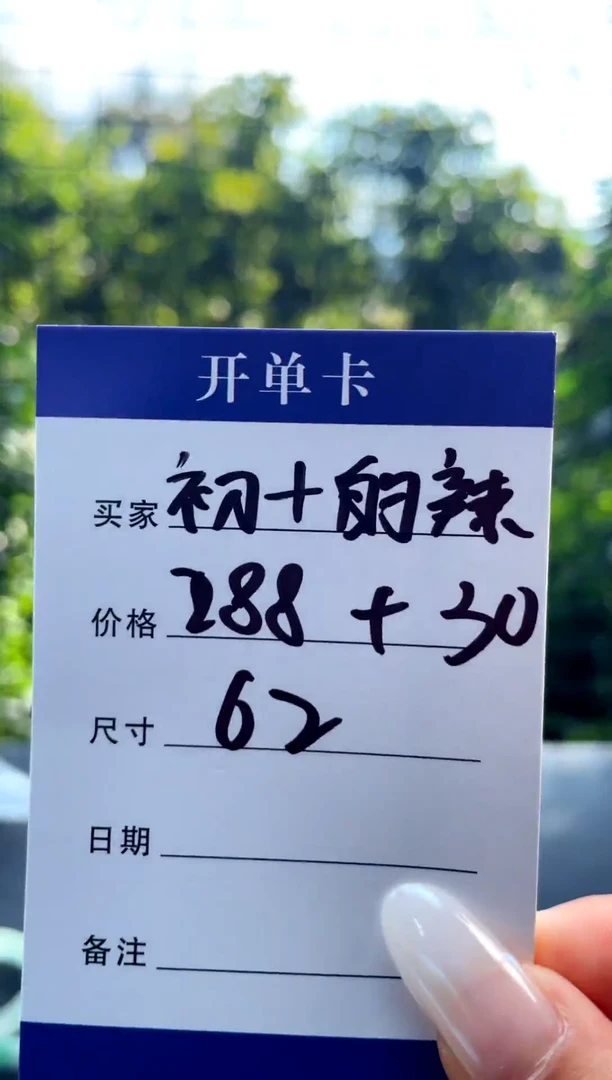 开单卡
买家 初十的辣
价格 288 + 30
尺寸 62
日期
备注